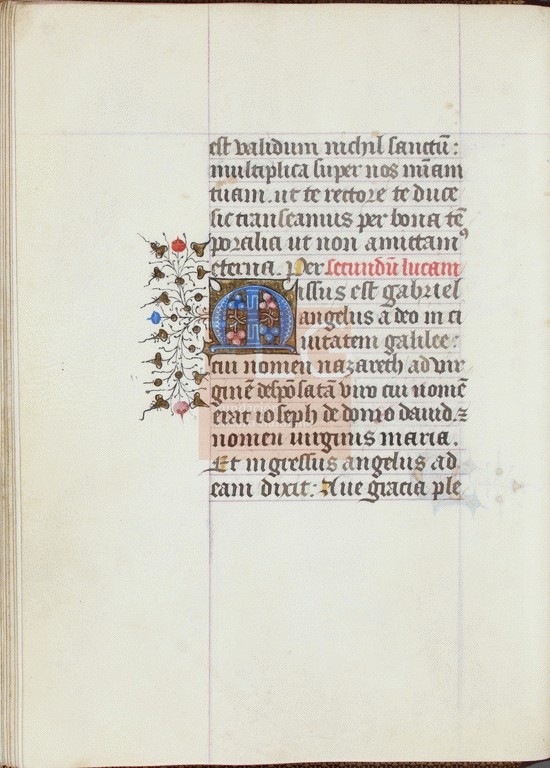 est validum nichil sanctū:
multiplica super nos mīam
tuam. ut te rectore te duce
sic transeamus per bona tē
poralia ut non amittamꝰ
eterna. Per secundū lucam
Missus est gabriel
angelus a deo in ci
uitatem galilee:
cui nomen nazareth ad vir
ginē despōsatā viro cui nomē
erat ioseph de domo dauid. ⁊
nomen uirginis maria.
Et ingressus angelus ad
eam dixit: Aue gracia ple